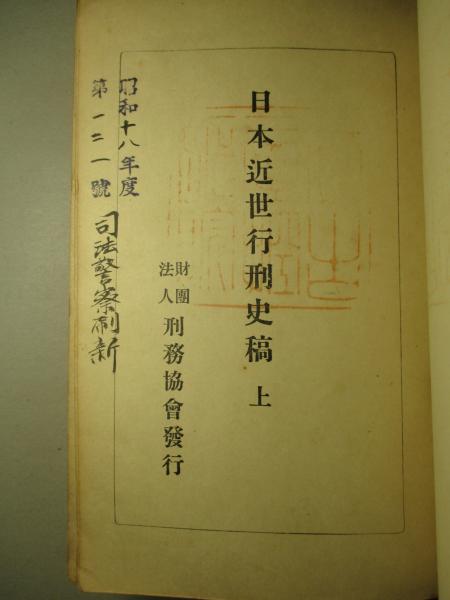 日本近世行刑史稿 上
財團法人 刑務協會發行
昭和十八年度
第一二一號 司法警察刷新